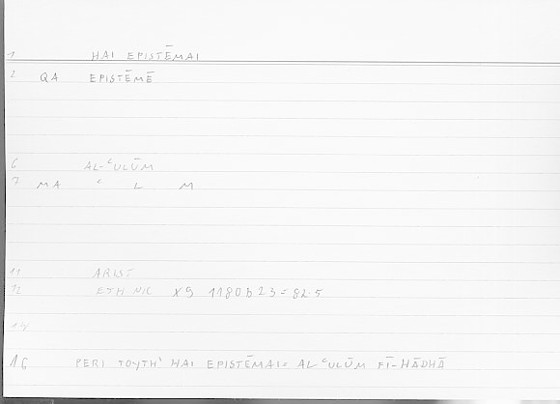 1 HAI EPISTĒMAI
2 QA EPISTĒMĒ
6 AL-ʿULŪM
7 MA ʿ L M
11 ARIST
12 ETH NIC X 9 1180 b 23 = 82.5
14
16 PERI TOYTH' HAI EPISTĒMAI= AL ʿULŪM FĪ-HĀDHĀ